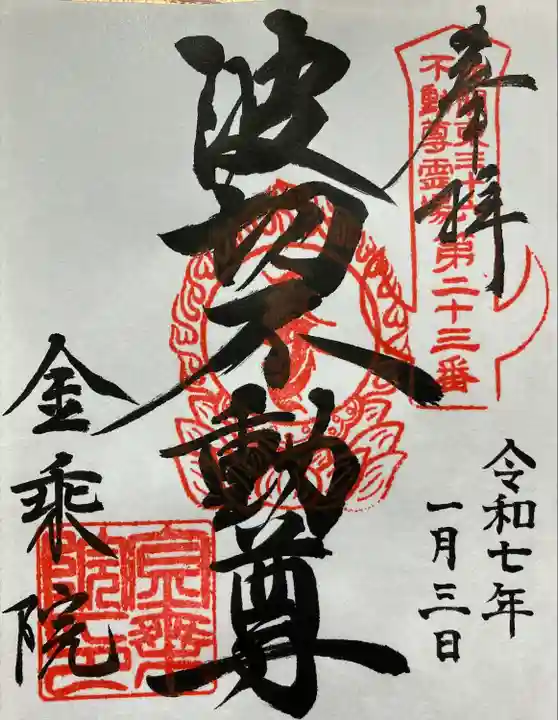 奉拝
関東三十六
不動尊霊場第二十三番
波切不動尊
令和七年
一月三日
金乗院